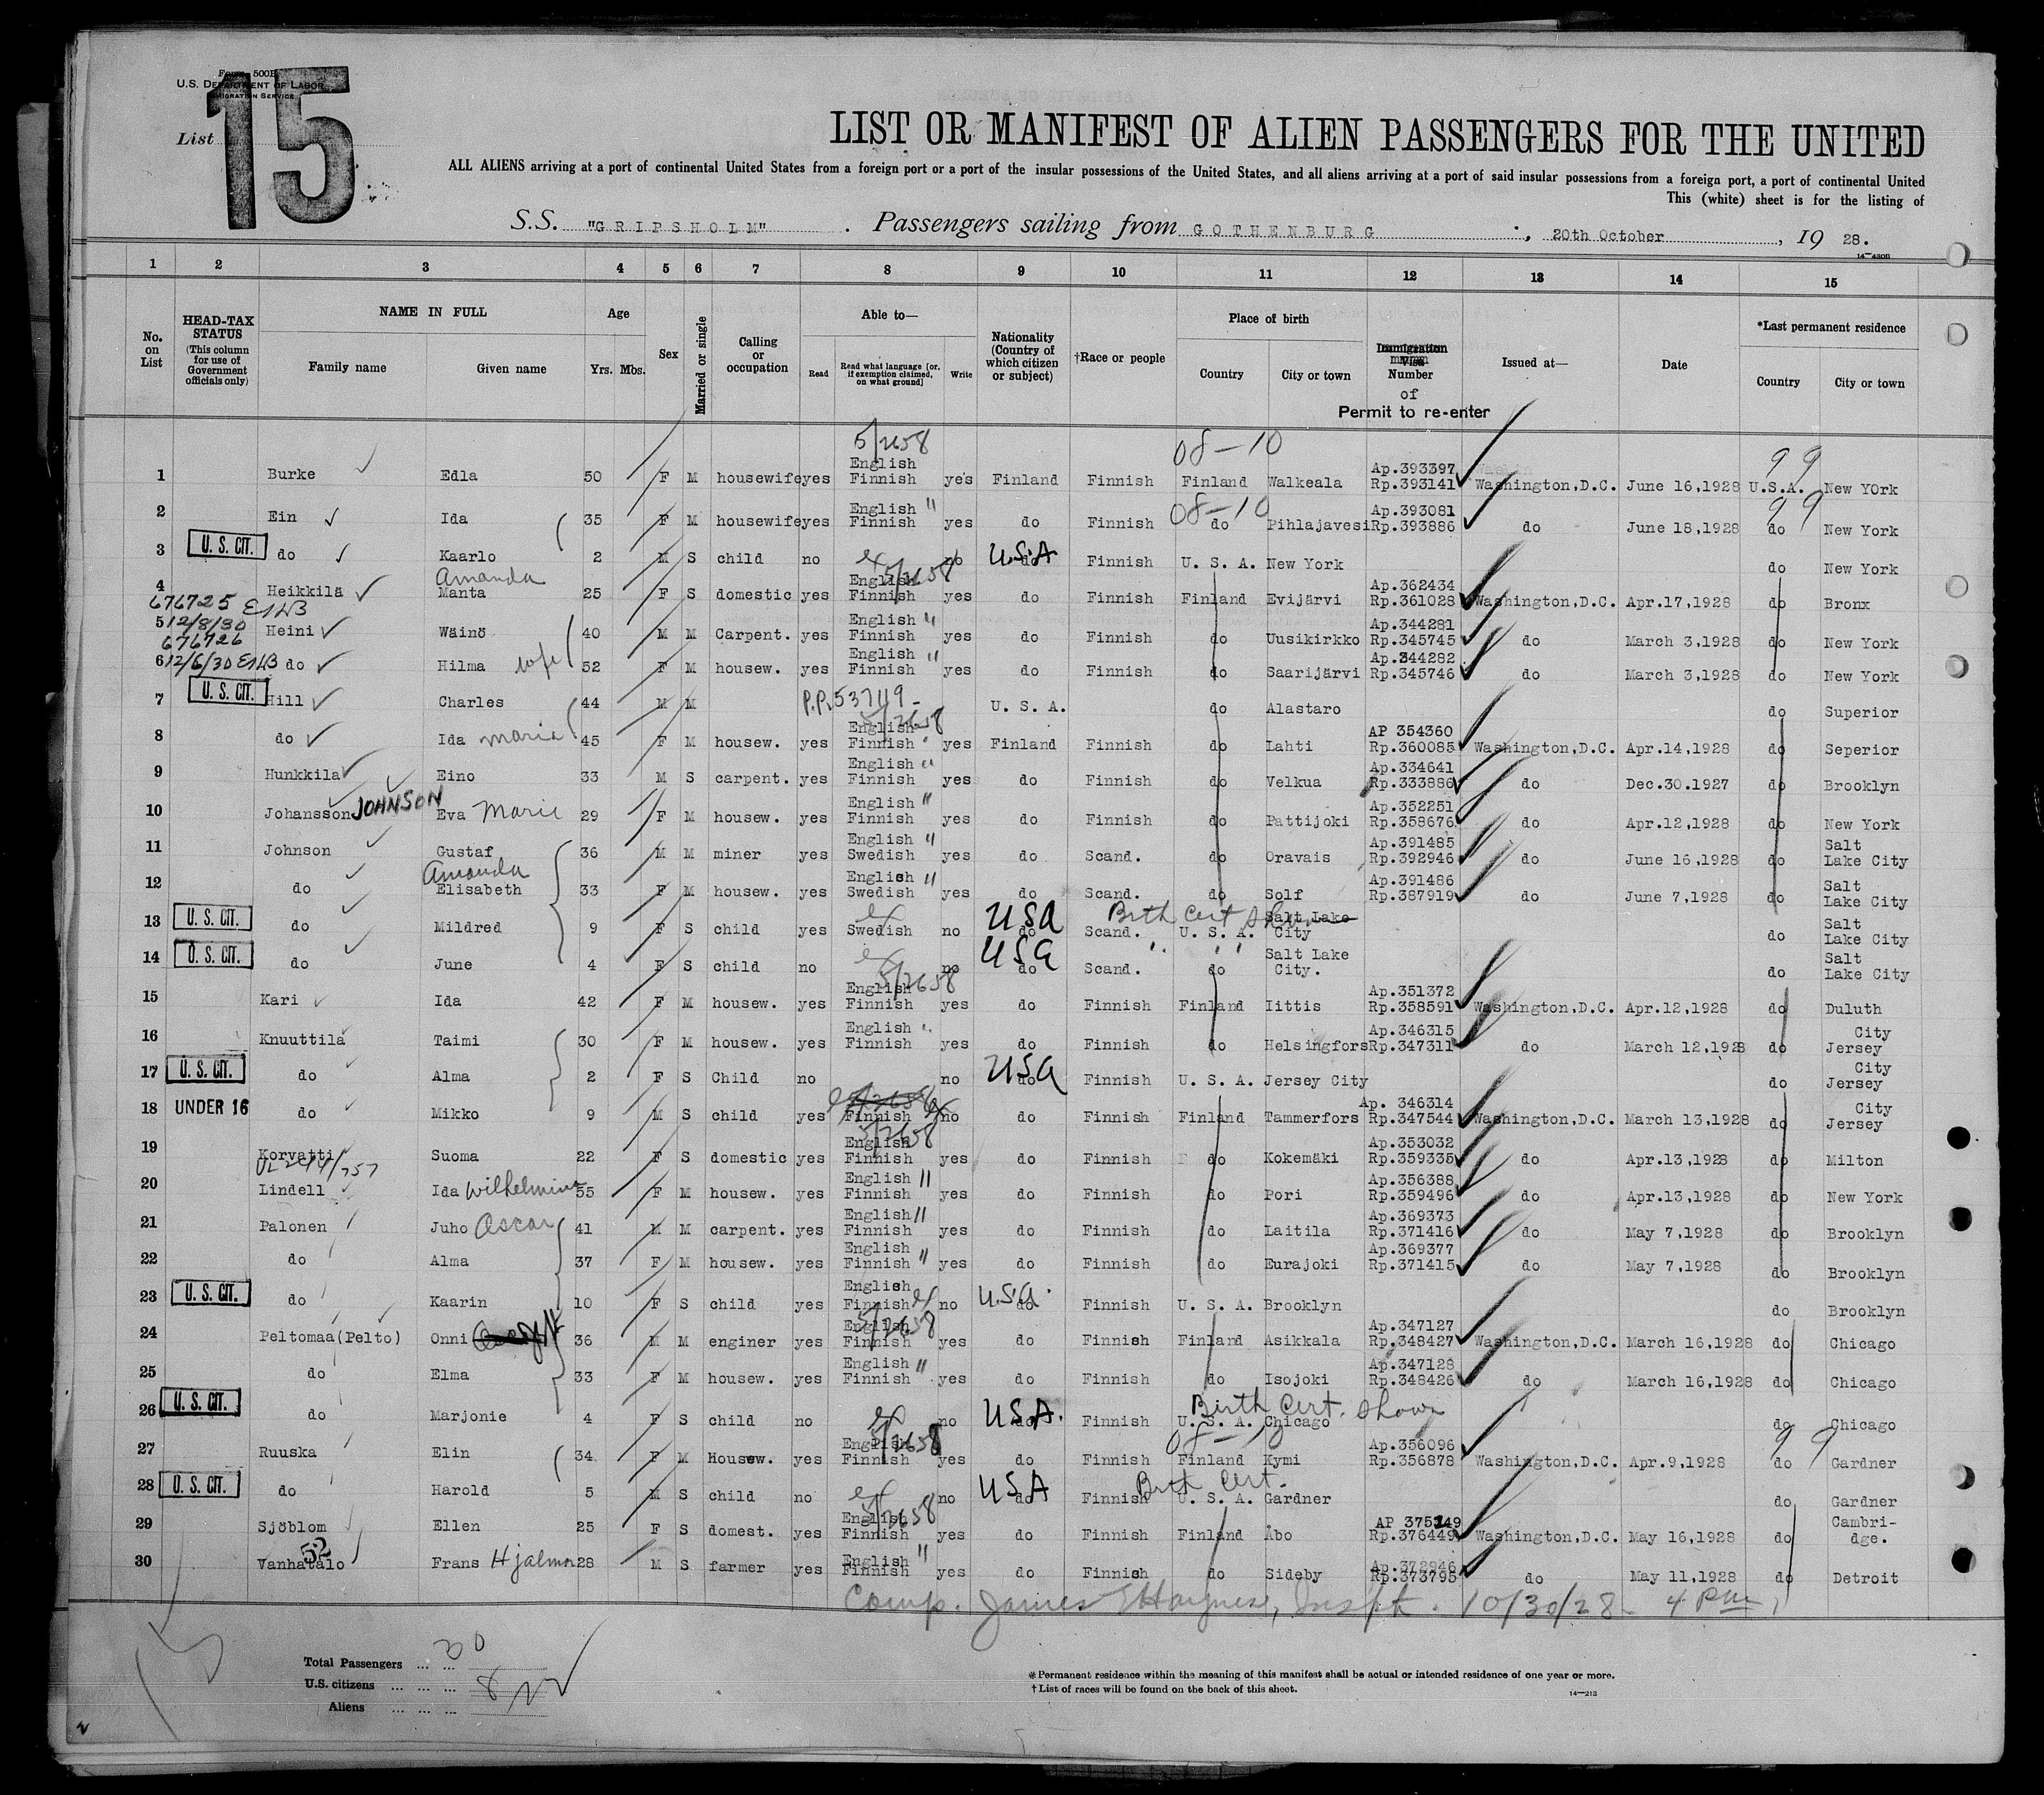 Form 500B
U.S. DEPARTMENT OF LABOR
IMMIGRATION SERVICE
List 15
LIST OR MANIFEST OF ALIEN PASSENGERS FOR THE UNITED
ALL ALIENS arriving at a port of continental United States from a foreign port or a port of the insular possessions of the United States, and all aliens arriving at a port of said insular possessions from a foreign port, a port of continental United
This (white) sheet is for the listing of
S.S. "GRIPSHOLM". Passengers sailing from GOTHENBURG, 20th October, 19 28.
14-430B
1 2 3 4 5 6 7 8 9 10 11 12 13 14 15
No. on List
HEAD-TAX STATUS (This column for use of Government officials only)
NAME IN FULL
Family name Given name
Age
Yrs. Mos.
Sex
Married or single
Calling or occupation
Able to—
Read Read what language [or, if exemption claimed, on what ground] Write
Nationality (Country of which citizen or subject)
†Race or people
Place of birth
Country City or town
Immigration Visa Number
of
Permit to re-enter
Issued at—
Date
*Last permanent residence
Country City or town
5/2658 08-10 99
1 Burke Edla 50 F M housewife yes English Finnish yes Finland Finnish Finland Walkeala Ap.393397 Rp.393141 Washington,D.C. June 16,1928 U.S.A. New York
08-10 99
2 Ein Ida 35 F M housewife yes English " Finnish yes do Finnish do Pihlajavesi Ap.393081 Rp.393886 do June 18,1928 do New York
3 U. S. CIT. do Kaarlo 2 M S child no ex no do U.S.A Finnish U. S. A. New York do New York
4 Heikkilä Amanda Manta 25 F S domestic yes 5/2658 English Finnish yes do Finnish Finland Evijärvi Ap.362434 Rp.361028 Washington,D.C. Apr.17,1928 do Bronx
676725
5 12/8/30 Heini Wäinö 40 M M Carpent. yes English " Finnish yes do Finnish do Uusikirkko Ap.344281 Rp.345745 do March 3,1928 do New York
676726
6 12/6/30 do Hilma wife 52 F M housew. yes English " Finnish yes do Finnish do Saarijärvi Ap.344282 Rp.345746 do March 3,1928 do New York
7 U. S. CIT. Hill Charles 44 M M P.P. 537119 U. S. A. do Alastaro do Superior
8 do Ida Maria 45 F M housew. yes 5/2658 English Finnish yes Finland Finnish do Lahti AP 354360 Rp.360085 Washington,D.C. Apr.14,1928 do Seperior
9 Hunkkila Eino 33 M S carpent. yes English " Finnish yes do Finnish do Velkua Ap.334641 Rp.333886 do Dec.30.1927 do Brooklyn
10 Johansson JOHNSON Eva Marie 29 F M housew. yes English " Finnish yes do Finnish do Pattijoki Ap.352251 Rp.358676 do Apr.12,1928 do New York
11 Johnson Gustaf 36 M M miner yes English " Swedish yes do Scand. do Oravais Ap.391485 Rp.392946 do June 16,1928 do Salt Lake City
12 do Amanda Elisabeth 33 F M housew. yes English " Swedish yes do Scand. do Solf Ap.391486 Rp.387919 do June 7,1928 do Salt Lake City
13 U. S. CIT. do Mildred 9 F S child yes ex Swedish no do USA Scand. Birth Cert Shown U. S. A. Salt Lake City do Salt Lake City
14 U. S. CIT. do June 4 F S child no ex no do USA Scand. " " " do Salt Lake City. do Salt Lake City
15 Kari Ida 42 F M housew. yes 5/2658 English Finnish yes do Finnish Finland Iittis Ap.351372 Rp.358591 Washington,D.C. Apr.12,1928 do Duluth
16 Knuuttila Taimi 30 F M housew. yes English " Finnish yes do Finnish do Helsingfors Ap.346315 Rp.347311 do March 12,1928 do City Jersey
17 U. S. CIT. do Alma 2 F S Child no no do USA Finnish U. S. A. Jersey City do City Jersey
18 UNDER 16 do Mikko 9 M S child yes Finnish ex no do Finnish Finland Tammerfors Ap. 346314 Rp.347544 Washington,D.C. March 13,1928 do City Jersey
19 Korvatti Suoma 22 F S domestic yes 5/2658 English Finnish yes do Finnish do Kokemäki Ap.353032 Rp.359335 do Apr.13,1928 do Milton
20 Lindell Ida Wilhelmina 55 F M housew. yes English " Finnish yes do Finnish do Pori Ap.356388 Rp.359496 do Apr.13,1928 do New York
21 Palonen Juho Oscar 41 M M carpent. yes English " Finnish yes do Finnish do Laitila Ap.369373 Rp.371416 do May 7,1928 do Brooklyn
22 do Alma 37 F M housew. yes English " Finnish yes do Finnish do Eurajoki Ap.369377 Rp.371415 do May 7,1928 do Brooklyn
23 U. S. CIT. do Kaarin 10 F S child yes English Finnish ex no do U.S.A. Finnish U. S. A. Brooklyn do Brooklyn
24 Peltomaa(Pelto) Onni 36 M M enginer yes 5/2658 English Finnish yes do Finnish Finland Asikkala Ap.347127 Rp.348427 Washington,D.C. March 16,1928 do Chicago
25 do Elma 33 F M housew. yes English " Finnish yes do Finnish do Isojoki Ap.347128 Rp.348426 do March 16,1928 do Chicago
26 U. S. CIT. do Marjonie 4 F S child no ex no do U.S.A. Finnish Birth Cert. Shown U. S. A. Chicago do Chicago
08-10 99
27 Ruuska Elin 34 F M Housew. yes 5/2658 English Finnish yes do Finnish Finland Kymi Ap.356096 Rp.356878 Washington,D.C. Apr.9,1928 do Gardner
28 U. S. CIT. do Harold 5 M S child no ex no do USA Finnish Birth Cert. U. S. A. Gardner do Gardner
29 Sjöblom Ellen 25 F S domest. yes 5/2658 English Finnish yes do Finnish Finland Åbo AP 375249 Rp.376449 Washington,D.C. May 16,1928 do Cambridge.
30 52 Vanhatalo Frans Hjalmar 28 M S farmer yes English " Finnish yes do Finnish do Sideby Ap.372946 Rp.373795 do May 11,1928 do Detroit
Comp. James Haynes, Inspt. 10/30/28 - 4 PM
Total Passengers ... ... 30
U.S. citizens ... ... ... 8
Aliens ... ... ... 22
*Permanent residence within the meaning of this manifest shall be actual or intended residence of one year or more.
†List of races will be found on the back of this sheet.
14-213